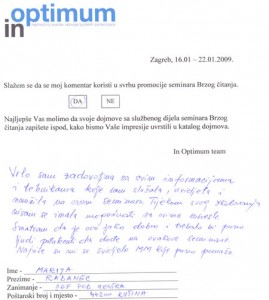 inoptimum
Zagreb, 16.01 – 22.01.2009.
Slažem se da se moj komentar koristi u svrhu promocije seminara Brzog čitanja.
DA NE
Najljepše Vas molimo da svoje dojmove sa službenog dijela seminara Brzog
čitanja zapišete ispod, kako bismo Vaše impresije uvrstili u katalog dojmova.
In Optimum team
Vrlo sam zadovoljna sa ovim informacijama
i tehnikama koje sam slušala, vidjela i
naučila na ovom seminaru. Tijekom svog
nisam se imala mogućnosti sa ovime susresti
Smatram da je ovo jako dobro i trebalo bi puno
ljudi potaknuti da dođe na ovakve seminare.
Najviše mi se sviđa MM koje puno pomaže
Ime - MARIJA
Prezime - RADANEC
Zanimanje -
Poštanski broj i mjesto - KUTINA